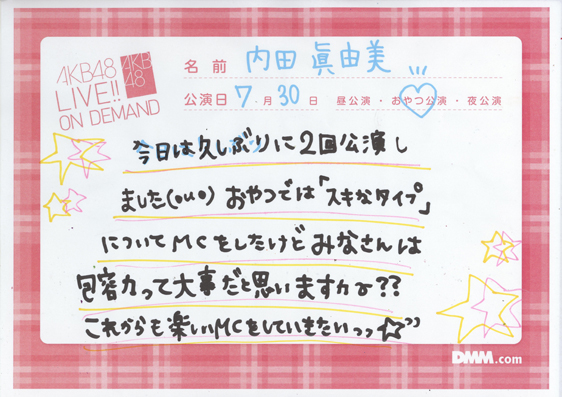 AKB48
LIVE!!
ON DEMAND
AKB
48
名前 内田 眞由美
公演日 7 月 30 日 昼公演・おやつ公演・夜公演
今日は久しぶりに2回公演し
ました(ouo) おやつでは「スキなタイプ」
についてMCをしたけど みなさんは
包容力って大事だと思いますかぁ??
これからも楽しいMCをしていきたいっっ☆"
DMM.com